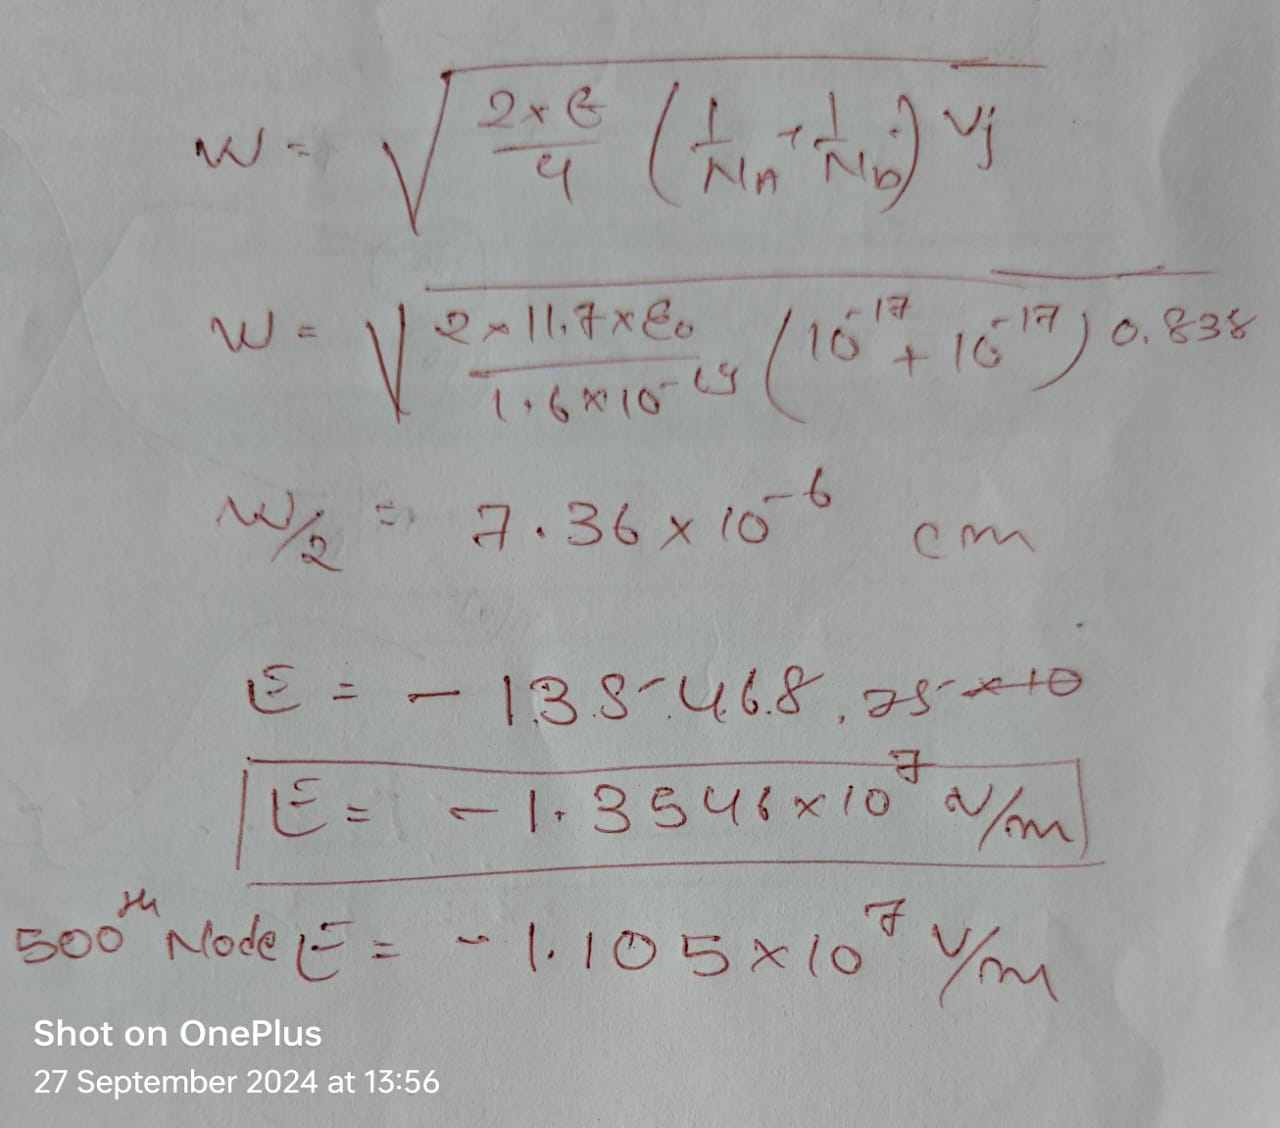 W = √ 2×ε/q (1/NA + 1/ND) Vj
W = √ 2×11.7×ε0/1.6×10^-19 (10^-17 + 10^-17) 0.838
W/2 = 7.36×10^-6 cm
E = -135468.75
E = -1.3546×10^7 V/m
500th Node E = -1.105×10^7 V/m
Shot on OnePlus
27 September 2024 at 13:56